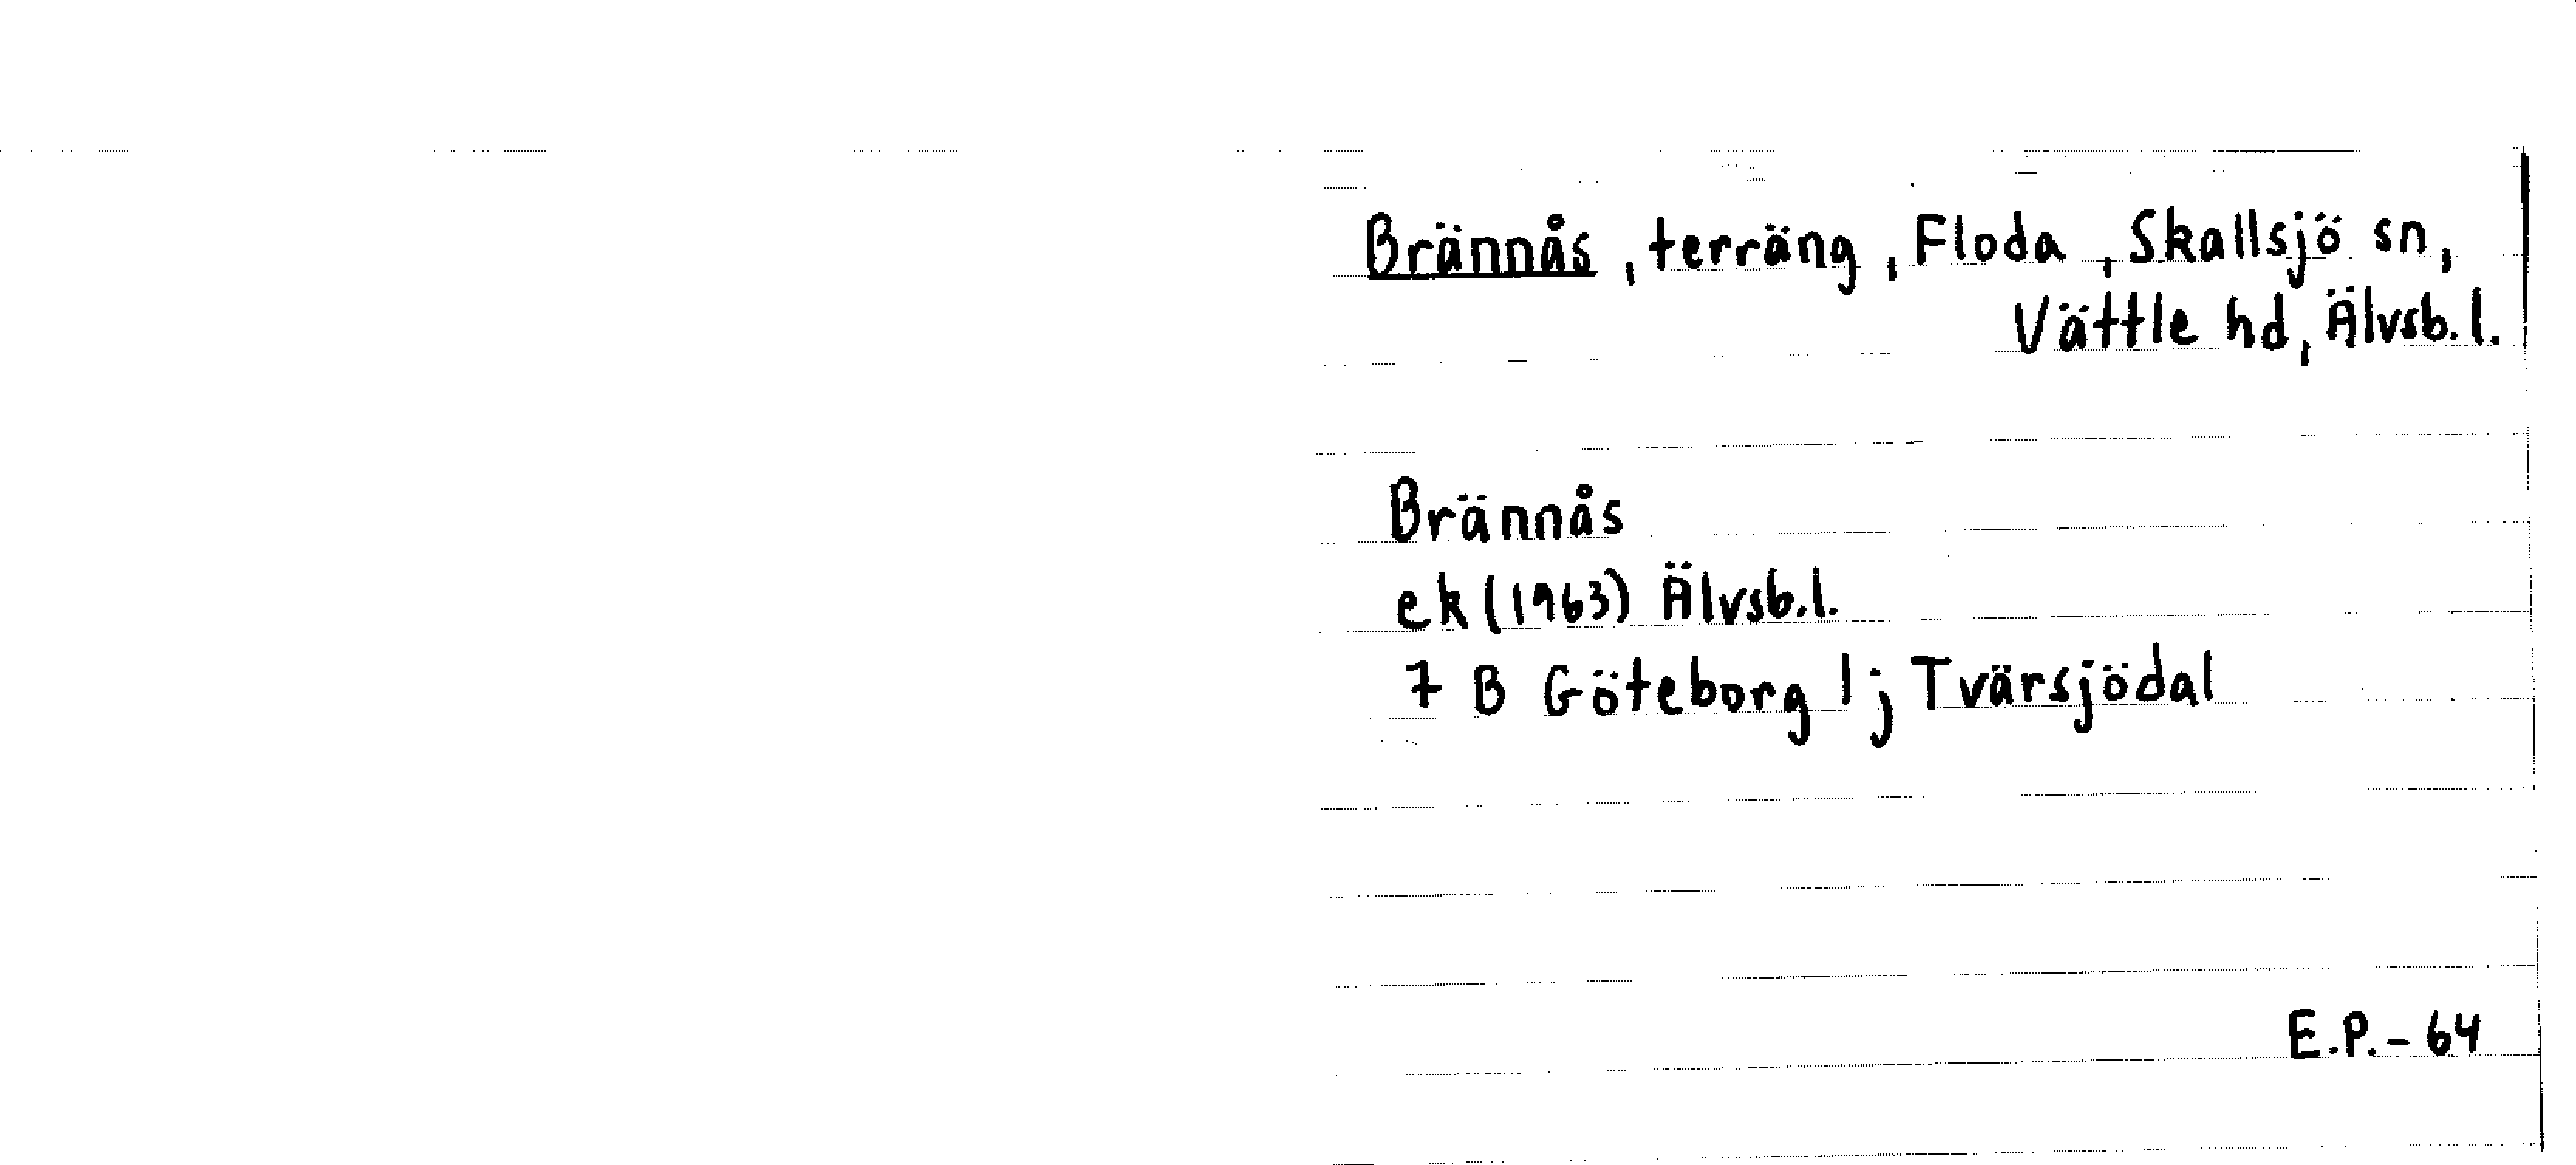 Brännås, terräng, Floda, Skallsjö sn,
Vättle hd, Älvsb.l.
Brännås
ek (1963) Älvsb.l.
7 B Göteborg 1 j Tvärsjödal
E.P.-64